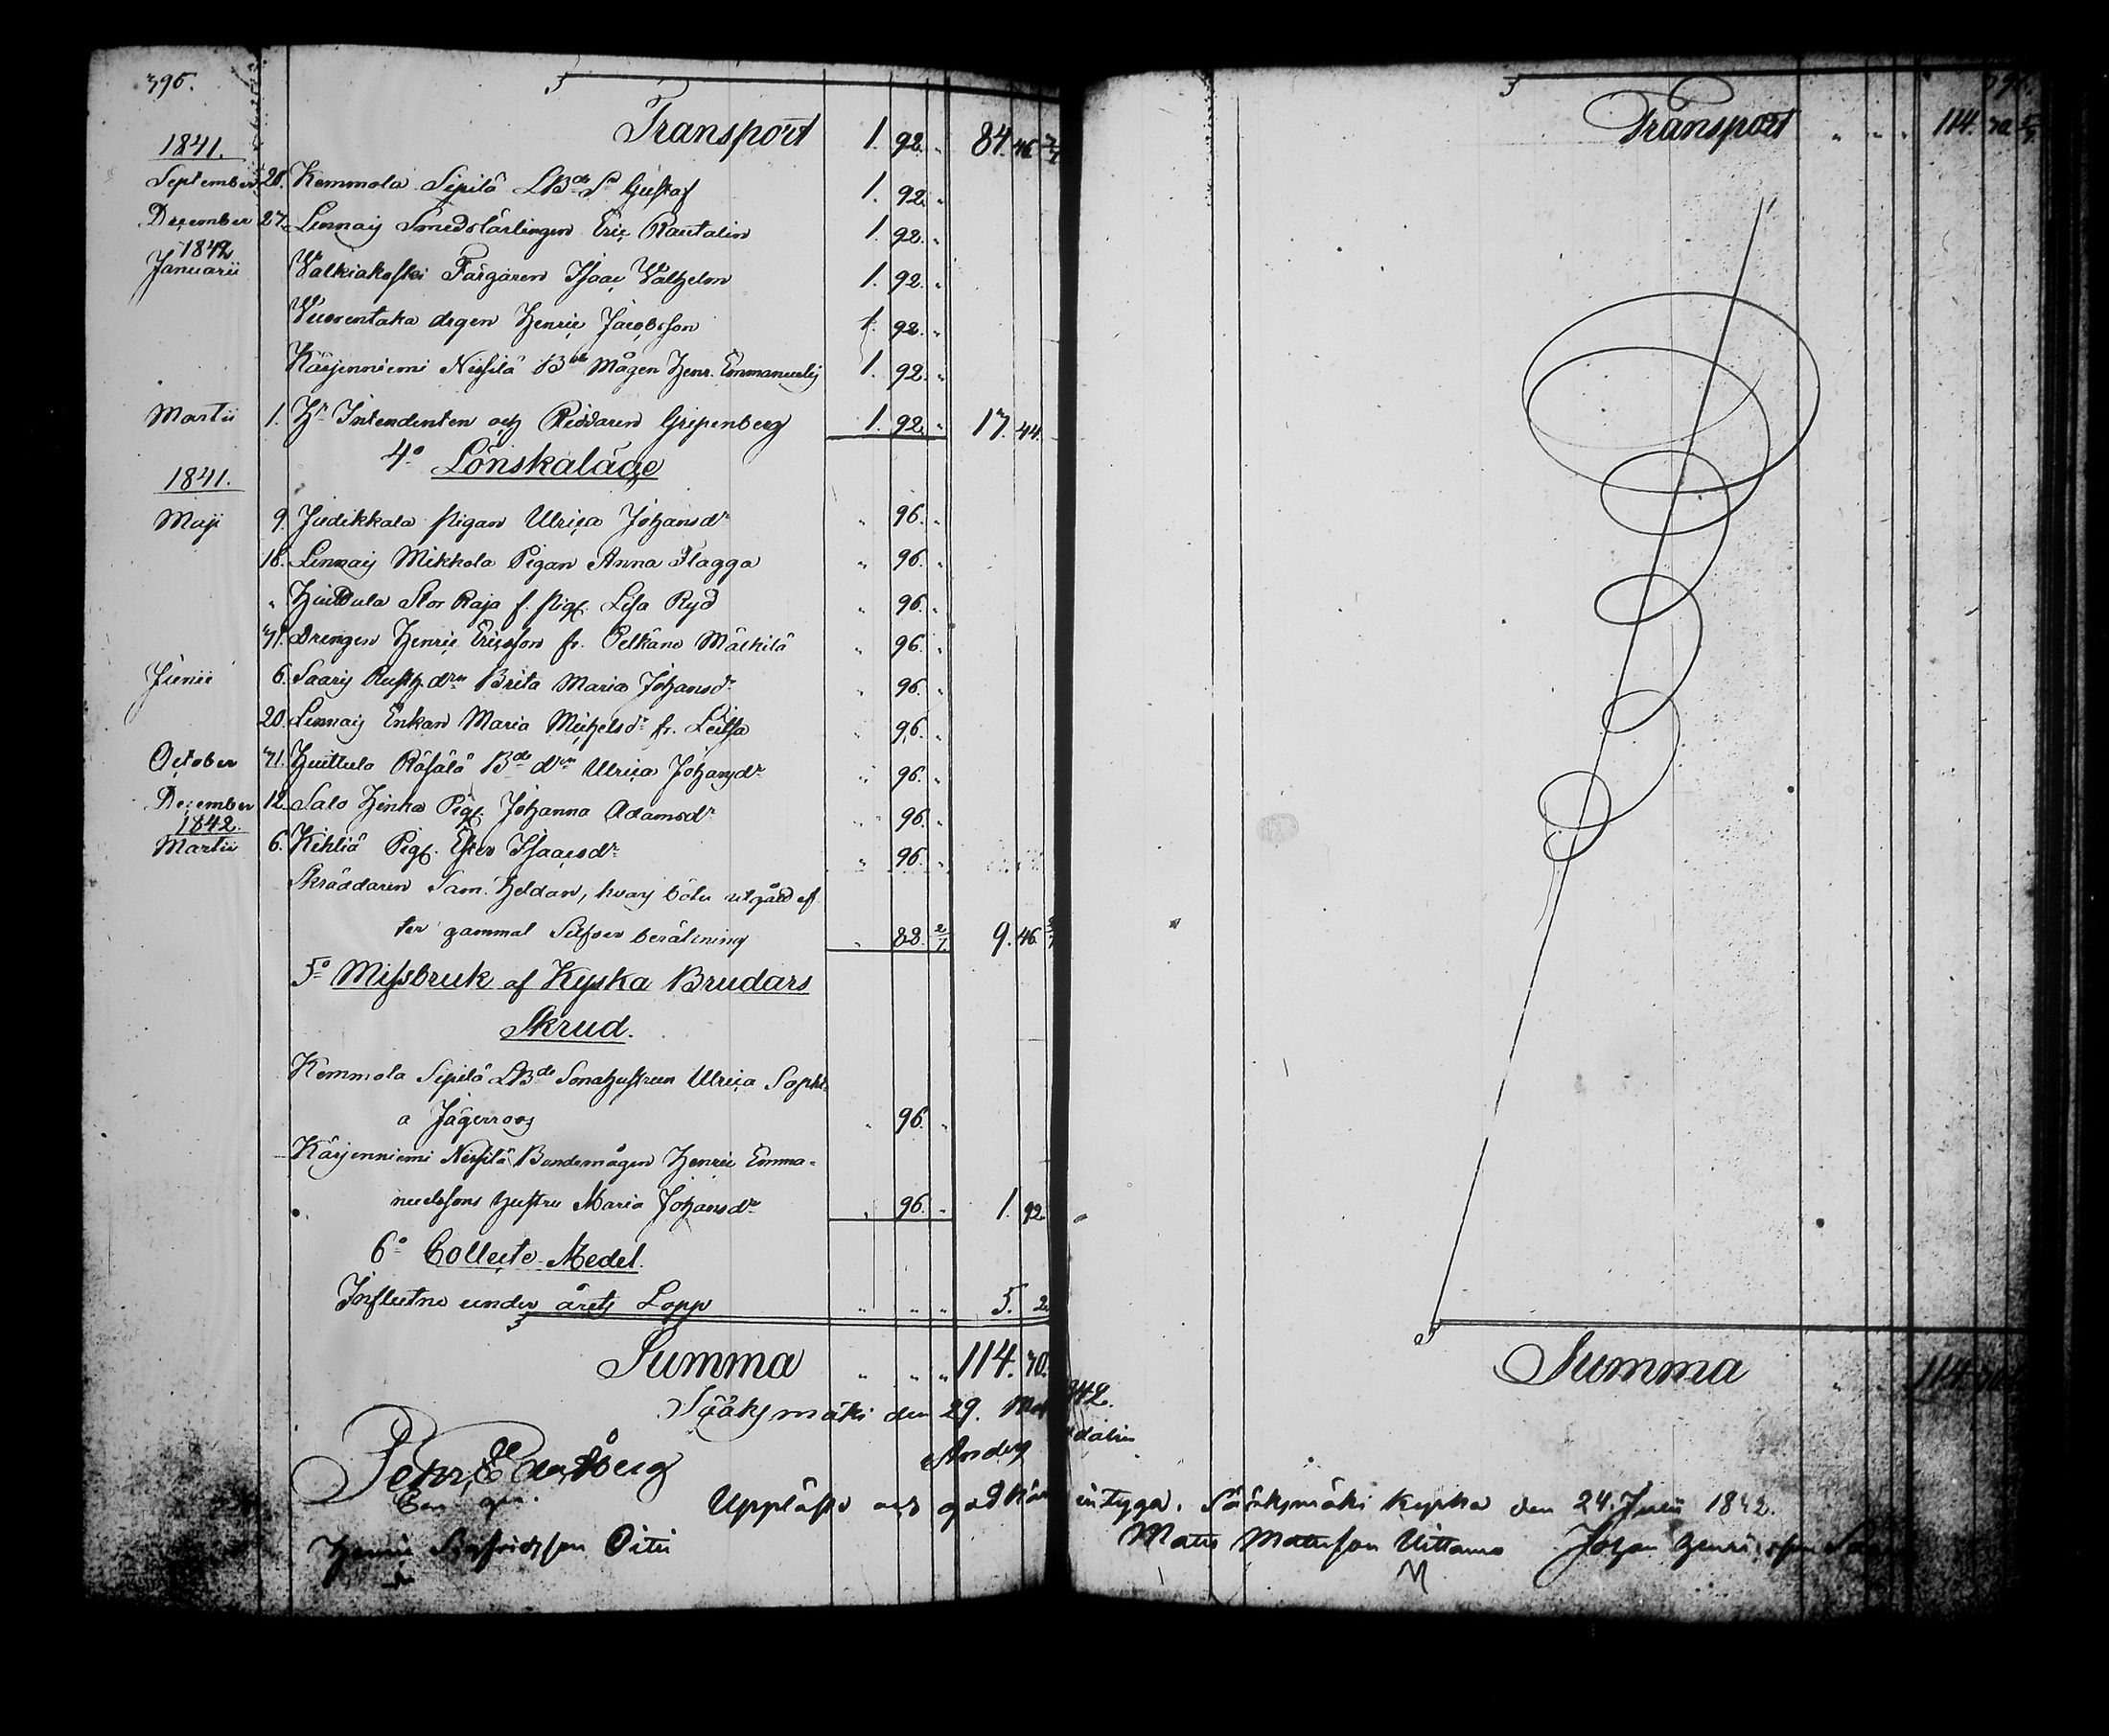 396.
Transport 1. 92. „ 84. 46 2/7
1841.
September 20. Kemmola Sipilä LBde Sn Gustaf 1. 92. „
December 27. Linnais Smedslärlingen Eric Rautalin 1. 92. „
1842
Januarii Walkiakoski Färgaren Isaac Walhelm 1. 92. „
Vuorentaka drgen Henric Jacobsson 1. 92. „
Kärjenniemi Nissilä Bde Mågen Henr. Emmanuels 1. 92. „
Martii 1. Hr Intendenten och Riddaren Gripenberg 1. 92. „ 17. 44.
4o Lönskaläge
1841.
Maji 9. Judikkala pigan Ulrica Johansdr „ 96. „
18. Linnais Mikkola Pigan Anna Flagga „ 96. „
„ Huittula Stor Raja f. pig. Lisa Ryd „ 96. „
31. Drengen Henric Ericsson fr. Pelkäne Mälkilä „ 96. „
Junii 6. Saaris Rusth. drn Brita Maria Johansdr „ 96. „
20. Linnais Enkan Maria Michelsdr fr. „ 96. „
October 31. Huittula Räsälä Bde drn Ulrica Johansdr „ 96. „
December 12. Salo Pig. Johanna Adamsdr „ 96. „
1842.
Martii 6. Pig. Ester Isaacsdr „ 96. „
Skräddaren Sam. Heldan, hvars böter utgård ef
ter gammal Silfver beräkning „ 88. 2/7. 9. 46.
5o Missbruk af Kyska Brudars
Skrud.
Kemmola Sipilä LBde Sonahustrun Ulrica Sophi-
a Jägerroos „ 96. „
Kärjenniemi Nissilä Bondemågen Henric Emma-
nuelssons hustru Maria Johansdr „ 96. „ 1. 92.
6o Collecte-Medel.
Influtne under årets Lopp „ „ „ 5. 2
Summa „ „ „ 114. 30.
Sääksmäki den 29. 842.
Anders dalin
Uppläst och godkän intyga. Sääksmäki kyrka den 24. Junii 1842.
Matts Mattsson Uittamo Johan Henricsson
Transport „ „ „ 114. 30 5/7.
Summa „ „ 114. 30